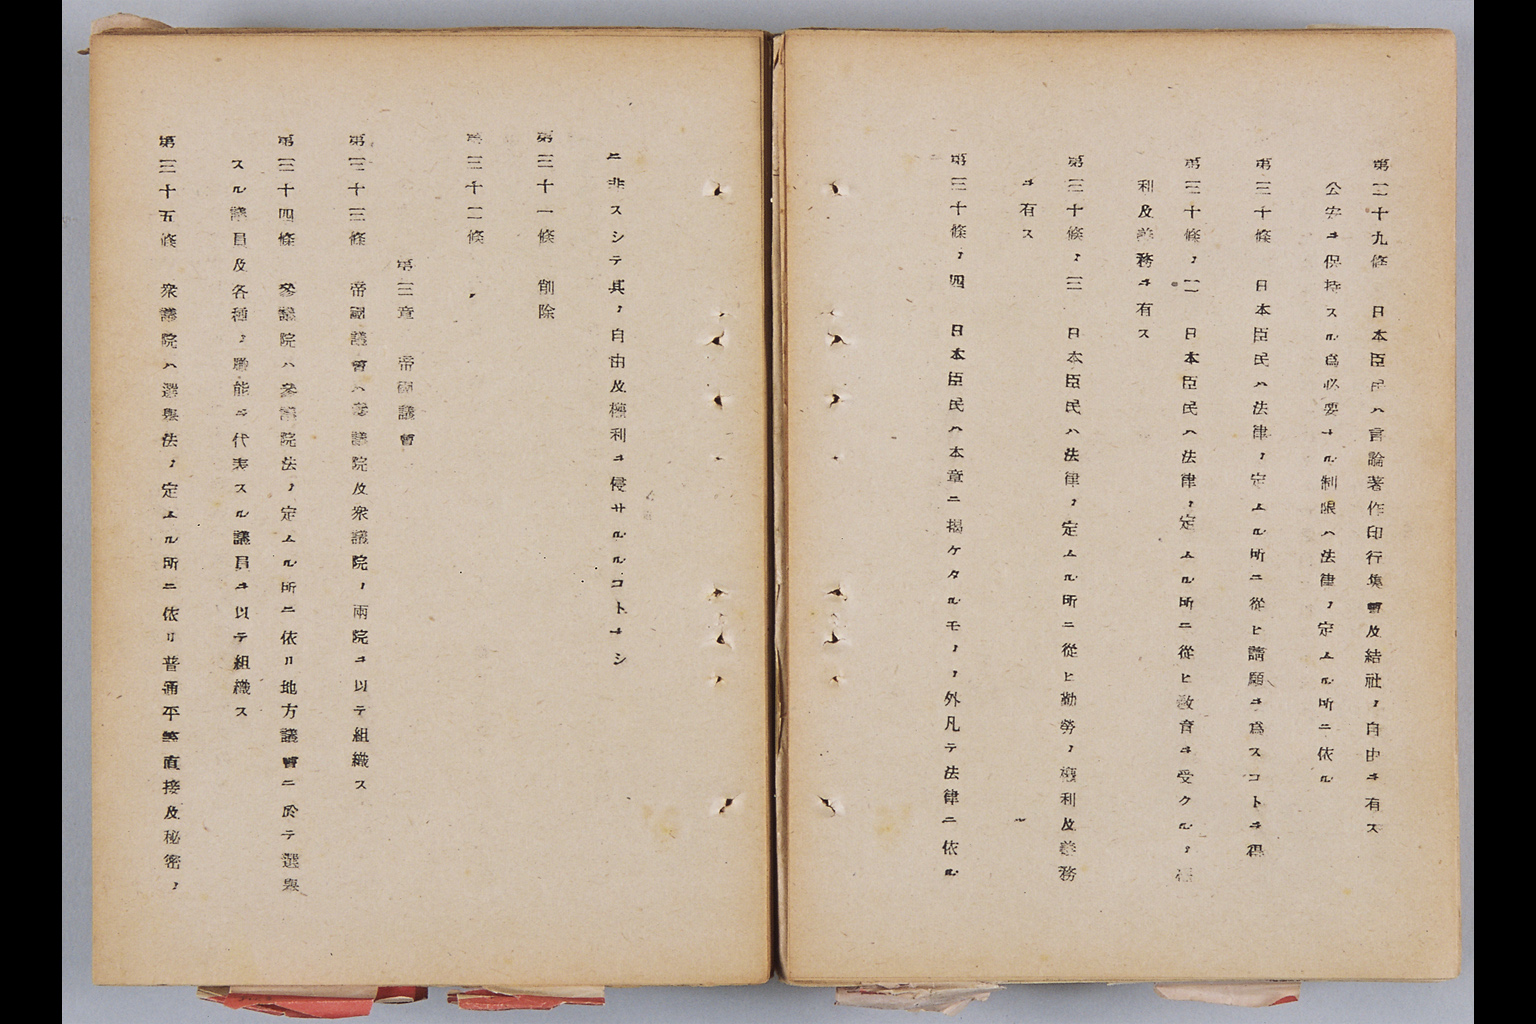 第二十九條　日本臣民ハ言論著作印行集會及結社ノ自由ヲ有ス
公安ヲ保持スル爲必要ナル制限ハ法律ノ定ムル所ニ依ル
第三十條　日本臣民ハ法律ノ定ムル所ニ從ヒ請願ヲ爲スコトヲ得
第三十條ノ二　日本臣民ハ法律ノ定ムル所ニ從ヒ敎育ヲ受クルノ權
利及義務ヲ有ス
第三十條ノ三　日本臣民ハ法律ノ定ムル所ニ從ヒ勤勞ノ權利及義務
ヲ有ス
第三十條ノ四　日本臣民ハ本章ニ揭ケタルモノノ外凡テ法律ニ依ル
ニ非スシテ其ノ自由及權利ヲ侵サルルコトナシ
第三十一條　削除
第三十二條　〃
第三章　帝國議會
第三十三條　帝國議會ハ參議院及衆議院ノ兩院ヲ以テ組織ス
第三十四條　參議院ハ參議院法ノ定ムル所ニ依リ地方議會ニ於テ選擧
スル議員及各種ノ職能ヲ代表スル議員ヲ以テ組織ス
第三十五條　衆議院ハ選擧法ノ定ムル所ニ依リ普通平等直接及秘密ノ